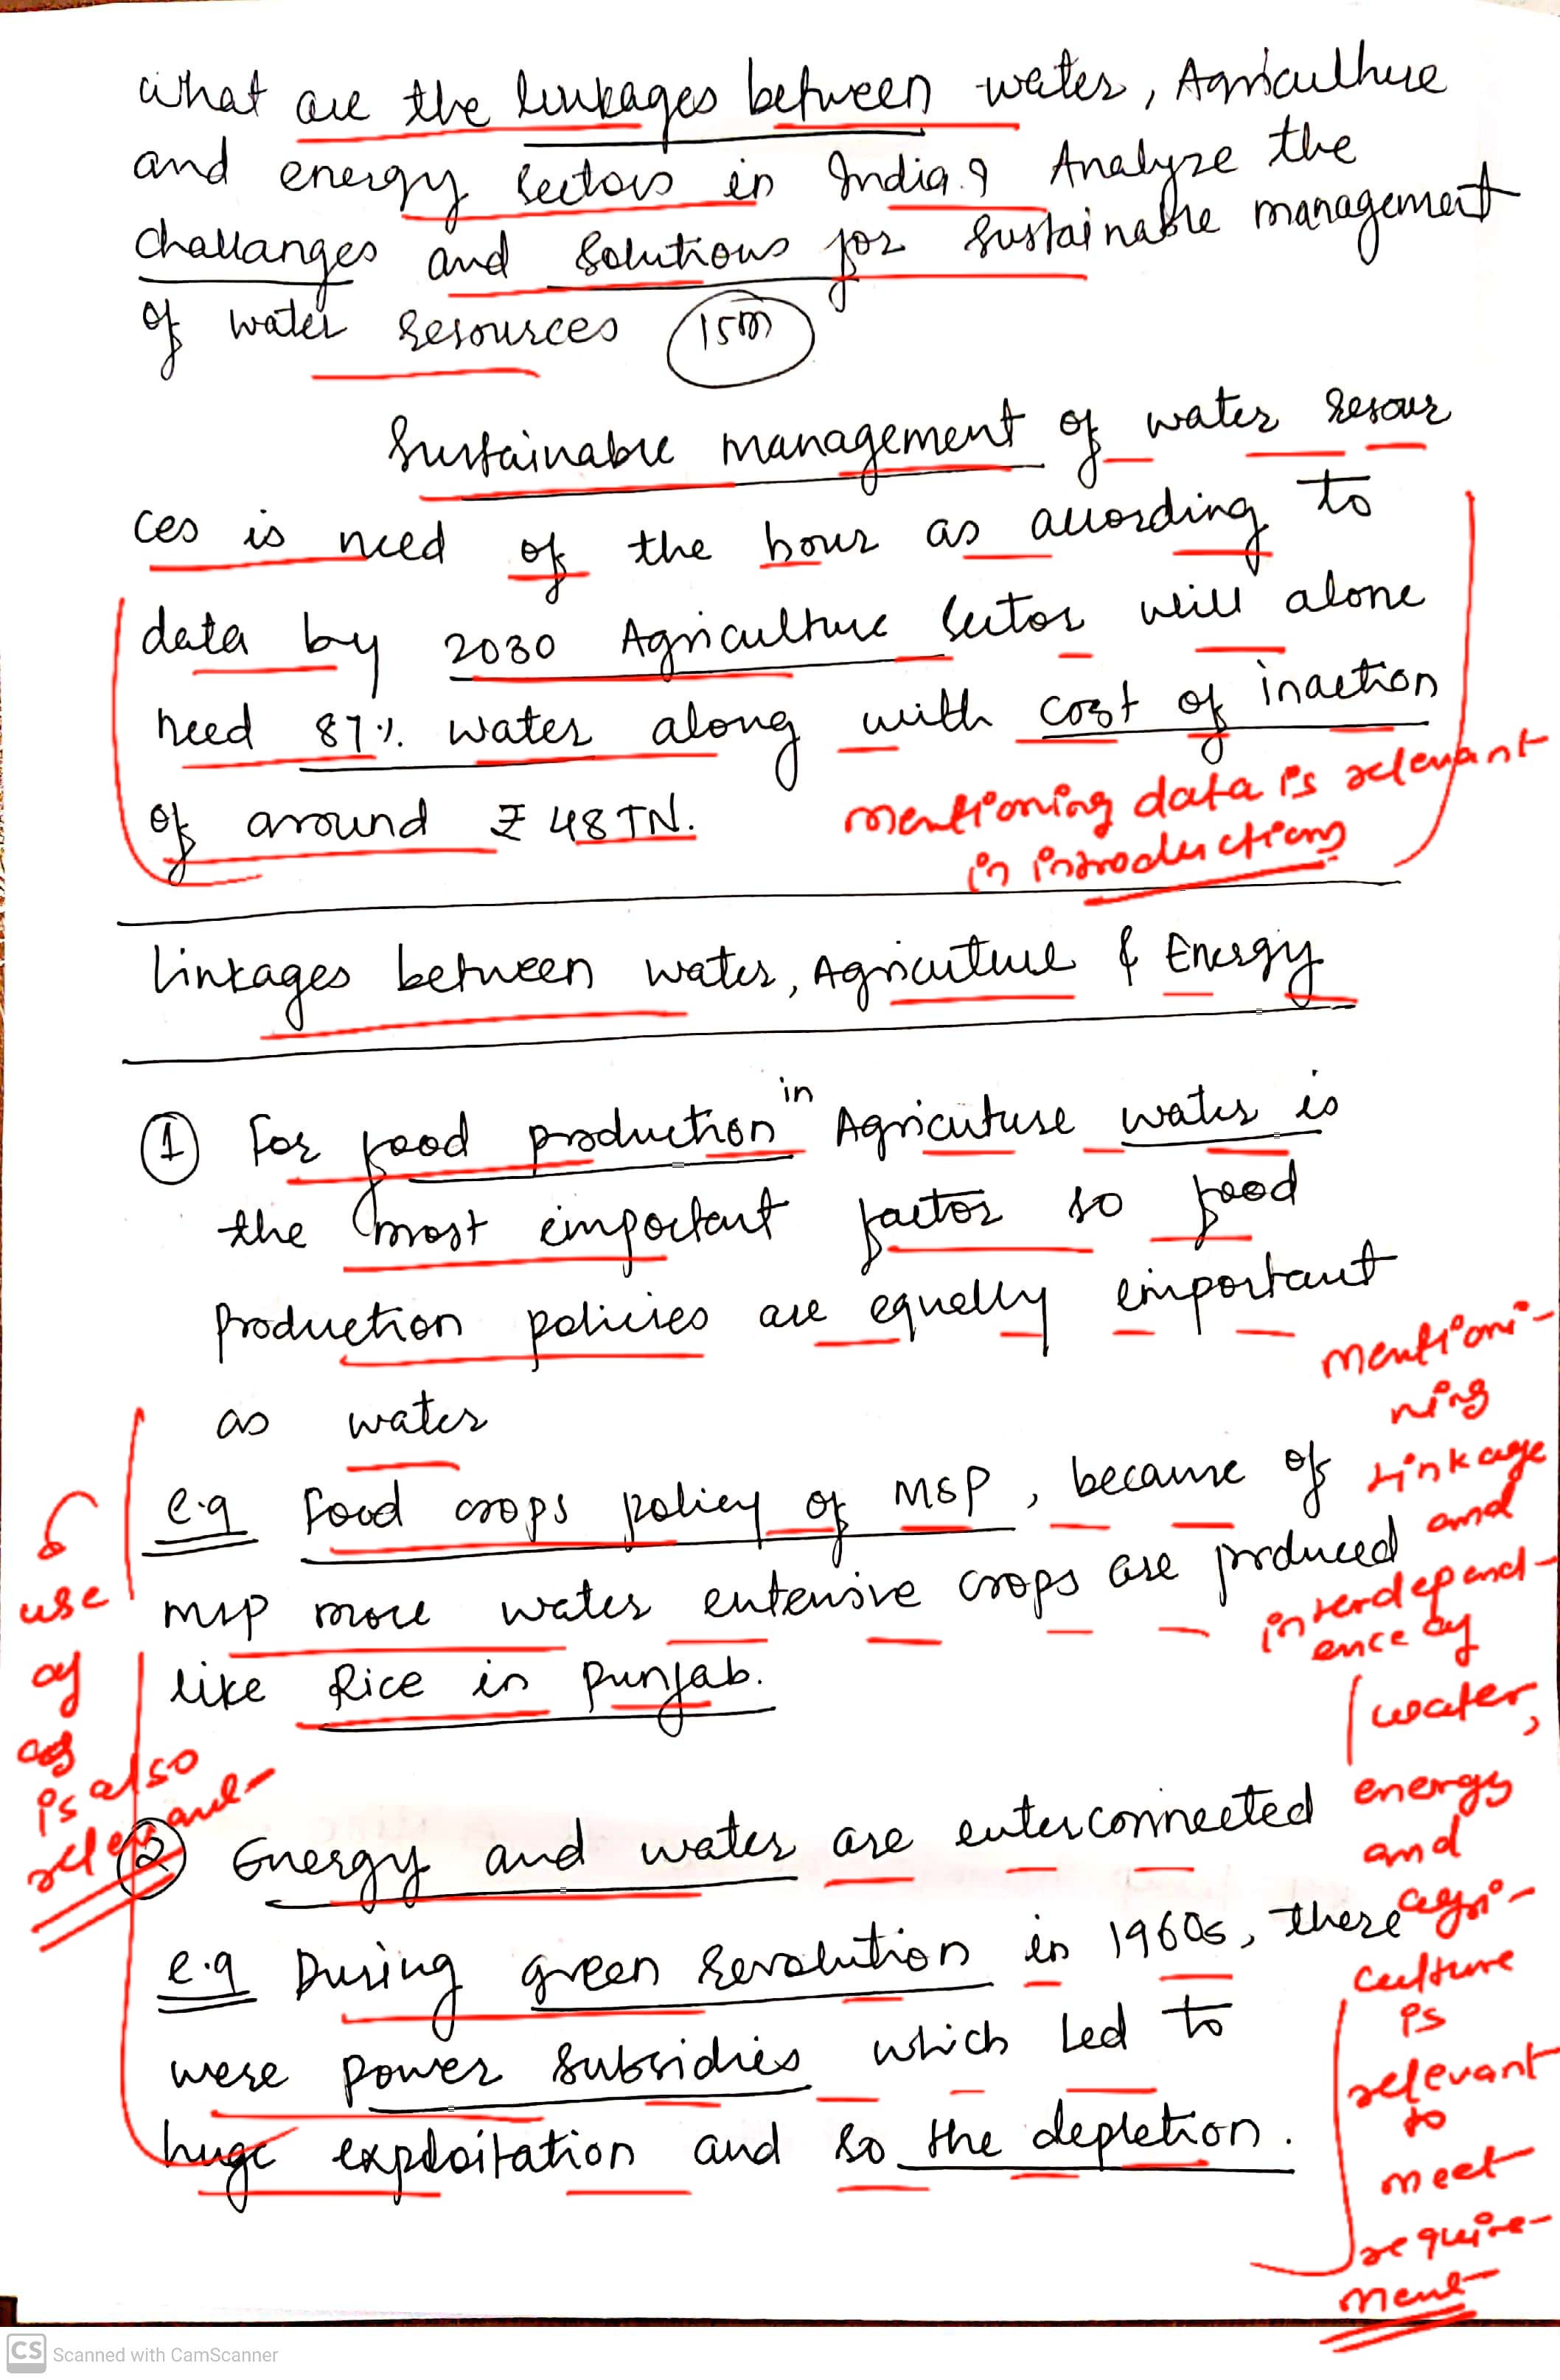 What are the linkages between water, Agriculture
and energy sectors in India? Analyze the
challanges and solutions for sustainable management
of water resources 15m
Sustainable management of water resour
ces is need of the hour as according to
data by 2030 Agriculture sector will alone
need 87% water along with cost of inaction
of around ₹ 48 TN.
mentioning data is relevant
in introduction
Linkages between water, Agriculture & Energy
1 For food production in Agriculture water is
the most important factor so food
production policies are equally important
as water
e.g Food crops policy of MSP, because of
MSP more water entensive crops are produced
like Rice in Punjab.
use
of
eg
is also
relevant
mentioni-
ning
linkage
and
interdepend-
ence of
water,
energy
and
agri-
culture
is
relevant
to
meet
require-
ment
2 Energy and water are enterconnected
e.g During green revolution in 1960s, there
were power subsidies which led to
huge exploitation and so the depletion.
CS Scanned with CamScanner